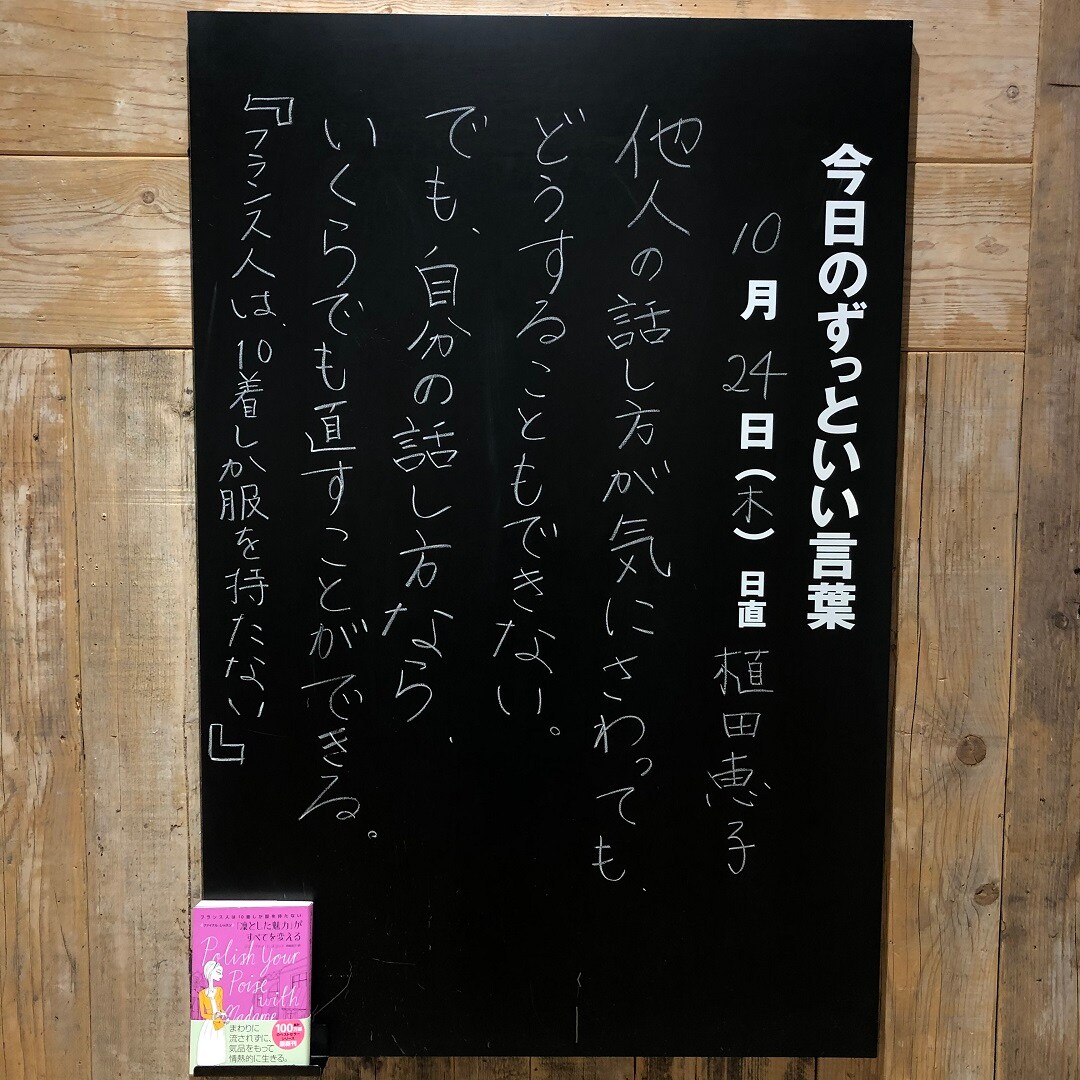 今日のずっといい言葉
10月24日(木) 日直 植田恵子
他人の話し方が気にさわっても、
どうすることもできない。
でも、自分の話し方なら、
いくらでも直すことができる。
『フランス人は、10着しか服を持たない』
フランス人は10着しか服を持たない
「凛とした魅力」が
すべてを変える
Polish Your
Poise
with
Madame
まわりに
流されずに、
気品をもって
情熱的に生きる。
100万部